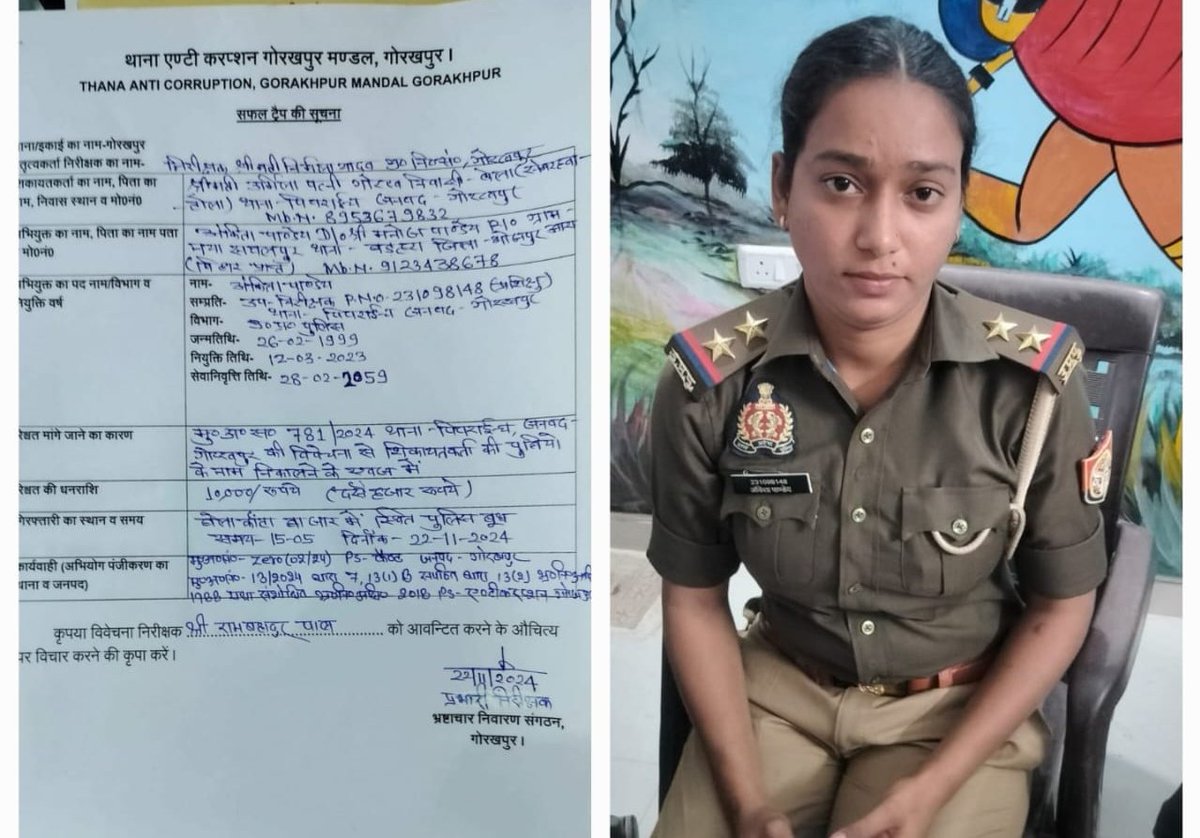 थाना एण्टी करप्शन गोरखपुर मण्डल, गोरखपुर ।
THANA ANTI CORRUPTION, GORAKHPUR MANDAL GORAKHPUR
सफल ट्रैप की सूचना
ाना/इकाई का नाम-गोरखपुर
तृत्वकर्ता निरीक्षक का नाम- निरीक्षक श्रीमती
कायतकर्ता का नाम, पिता का
ाम, निवास स्थान व मो0नं0
श्रीमती उर्मिला पत्नी
टोला) थाना- जनपद- गोरखपुर
Mb.N. 8953679832
भियुक्त का नाम, पिता का नाम पता
मो0नं0
अंकिता पाण्डेय D/O श्री मनोज पाण्डेय R/O ग्राम-
थाना- बड़हरा जिला- भोजपुर
(बिहार प्रान्त) Mb.N. 9123438678
भियुक्त का पद नाम/विभाग व
युक्ति वर्ष
नाम- अंकिता पाण्डेय
सम्प्रति- उप-निरीक्षक P.N.O.-231098148
थाना- जनपद- गोरखपुर
विभाग- उ०प्र० पुलिस
जन्मतिथि- 26-02-1999
नियुक्ति तिथि- 12-03-2023
सेवानिवृत्ति तिथि- 28-02-2059
रिश्वत मांगे जाने का कारण
मु०अ०सं० 781/2024 थाना- जनपद-
गोरखपुर की विवेचना से शिकायतकर्ता की
के नाम निकालने के एवज में
रिश्वत की धनराशि
10,000/ रूपये (दस हजार रूपये)
गिरफ्तारी का स्थान व समय
बाजार में स्थित पुलिस बूथ
समय- 15-05 दिनांक- 22-11-2024
कार्यवाही (अभियोग पंजीकरण का
थाना व जनपद)
मु०अ०सं०- Zero(02/24) PS- कैण्ट जनपद- गोरखपुर
मु०अ०सं०- 13/2024 धारा 7, 13(1)B सपठित धारा 13(2)
1988 यथा संशोधित 2018 PS-
कृपया विवेचना निरीक्षक श्री रामबहादुर पाल को आवन्टित करने के औचित्य
पर विचार करने की कृपा करें ।
22/11/2024
प्रभारी निरीक्षक
भ्रष्टाचार निवारण संगठन,
गोरखपुर ।
231098148
अंकिता पाण्डेय